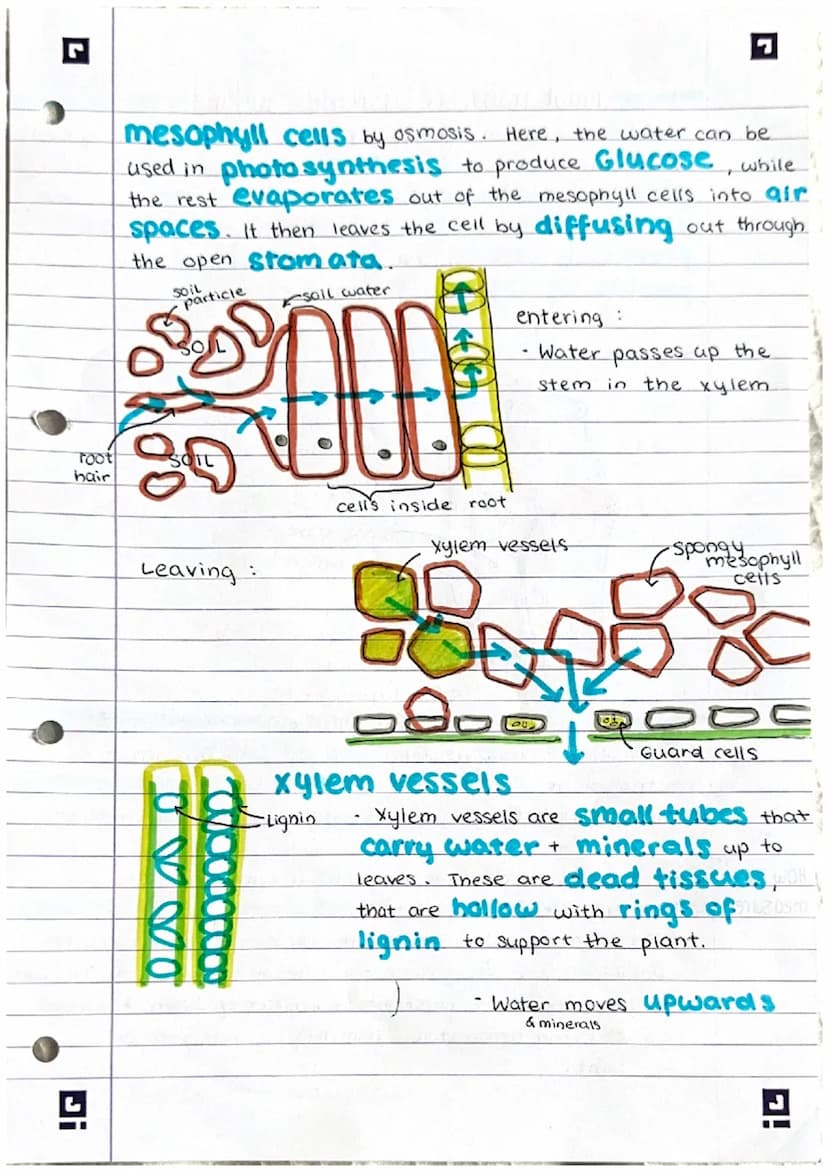 mesophyll cells by osmosis. Here, the water can be
used in photosynthesis to produce Glucose, while
the rest evaporates out of the mesophyll cells into air
spaces. It then leaves the cell by diffusing out through
the open stomata.
soil
particle
soil water
SOIL
entering :
- Water passes up the
stem in the xylem
root
hair
SOIL
cells inside root
Leaving :
xylem vessels
spongy
mesophyll
cells
Guard cells
xylem vessels
Lignin
- Xylem vessels are small tubes that
carry water + minerals up to
leaves. These are dead tissues,
that are hollow with rings of
lignin to support the plant.
- Water moves upwards
& minerals